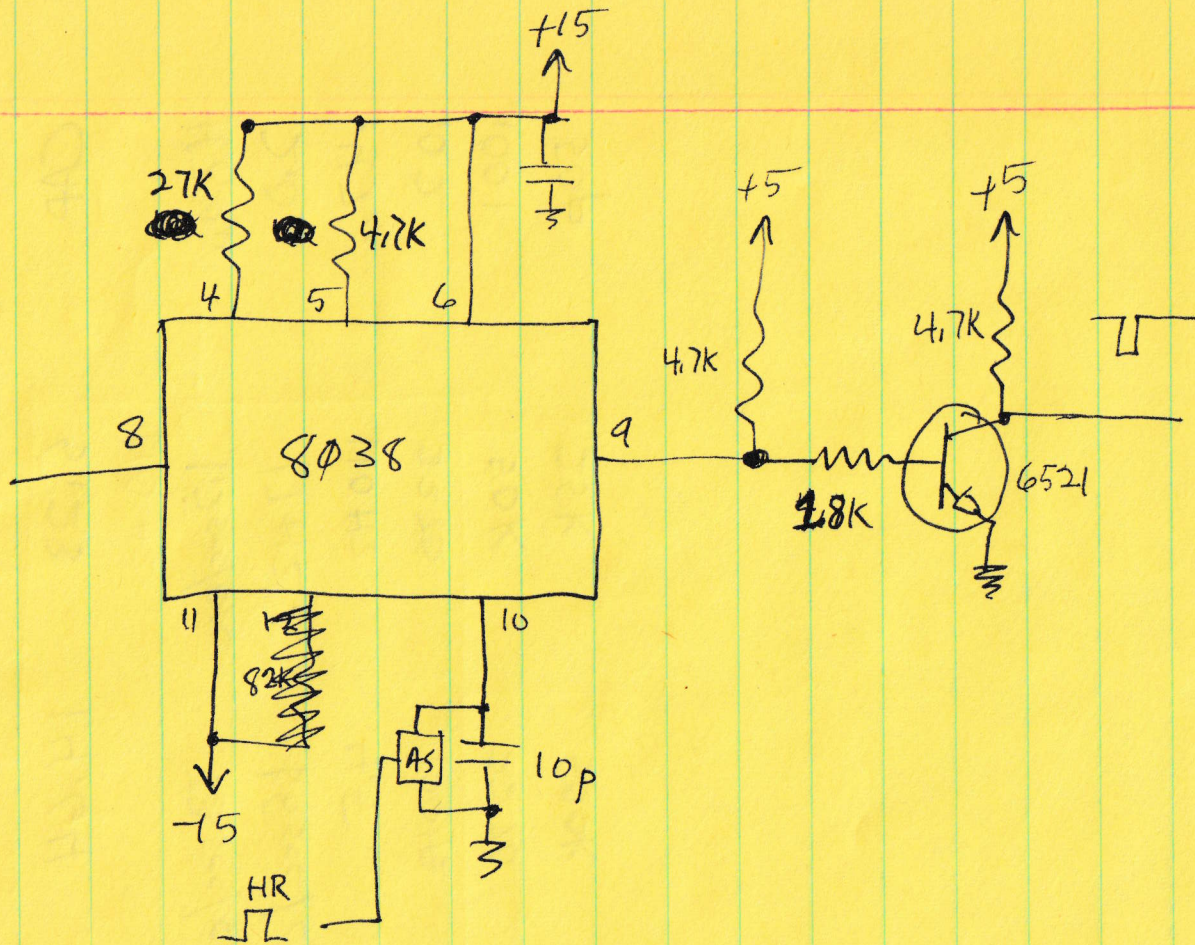 +15
27K
4.7K
4
5
6
+5
+5
4.7K
4.7K
8
8038
9
1.8K
6521
11
10
82K
AS
10p
-15
HR